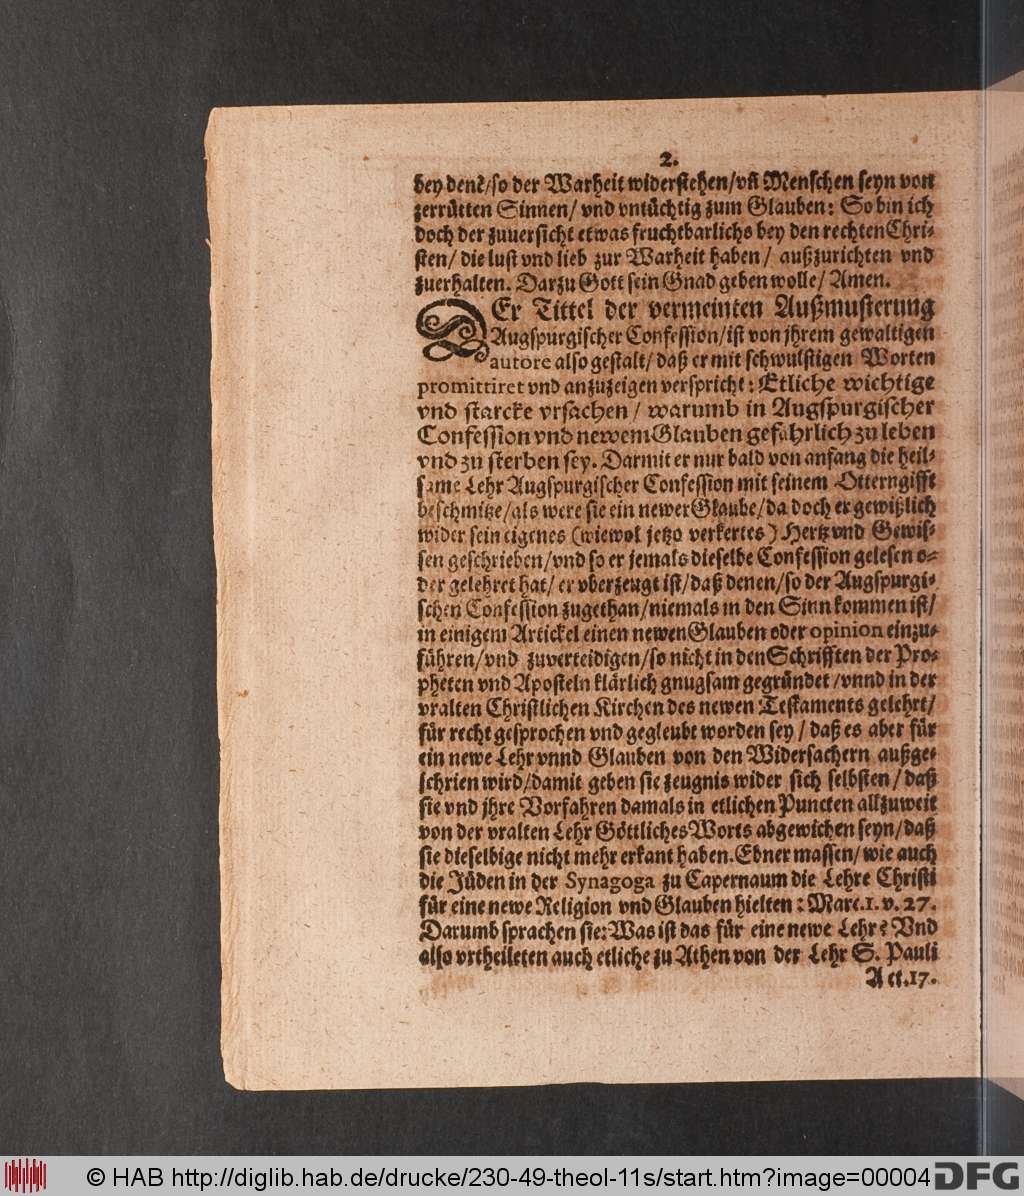 2.
bey denẽ/so der Warheit widerstehen/vñ Menschen seyn von
zerrütten Sinnen/ vnd vntüchtig zum Glauben: So bin ich
doch der zuuersicht etwas fruchtbarlichs bey den rechten Chri-
sten/ die lust vnd lieb zur Warheit haben/ außzurichten vnd
zuerhalten. Darzu Gott sein Gnad geben wolle/ Amen.
DEr Tittel der vermeinten Außmusterung
Augspurgischer Confession/ist von jhrem gewaltigen
autore also gestalt/ daß er mit schwulstigen Worten
promittiret vnd anzuzeigen verspricht: Etliche wichtige
vnd starcke vrsachen / warumb in Augspurgischer
Confession vnd newem Glauben gefährlich zu leben
vnd zu sterben sey. Darmit er nur bald von anfang die heil-
same Lehr Augspurgischer Confession mit seinem Otterngifft
beschmitze/als were sie ein newer Glaube/da doch er gewißlich
wider sein eigenes (wiewol jetzo verkertes) Hertz vnd Gewis-
sen geschrieben/vnd so er jemals dieselbe Confession gelesen o-
der gelehret hat/ er vberzeugt ist/daß denen/so der Augspurgi-
schen Confession zugethan/niemals in den Sinn kommen ist/
in einigem Artickel einen newen Glauben oder opinion einzu-
führen/vnd zuverteidigen/so nicht in den Schrifften der Pro-
pheten vnd Aposteln klärlich gnugsam gegründet/vnnd in der
vralten Christlichen Kirchen des newen Testaments gelehrt/
für recht gesprochen vnd gegleubt worden sey / daß es aber für
ein newe Lehr vnnd Glauben von den Widersachern außge-
schrien wird/damit geben sie zeugnis wider sich selbsten / daß
sie vnd jhre Vorfahren damals in etlichen Puncten allzuweit
von der vralten Lehr Göttliches Worts abgewichen seyn/daß
sie dieselbige nicht mehr erkant haben. Ebner massen/ wie auch
die Jüden in der Synagoga zu Capernaum die Lehre Christi
für eine newe Religion vnd Glauben hielten: Marc.1.v.27.
Darumb sprachen sie: Was ist das für eine newe Lehr? Vnd
also vrtheileten auch etliche zu Athen von der Lehr S. Pauli
Act.17.
© HAB http://diglib.hab.de/drucke/230-49-theol-11s/start.htm?image=00004
DFG